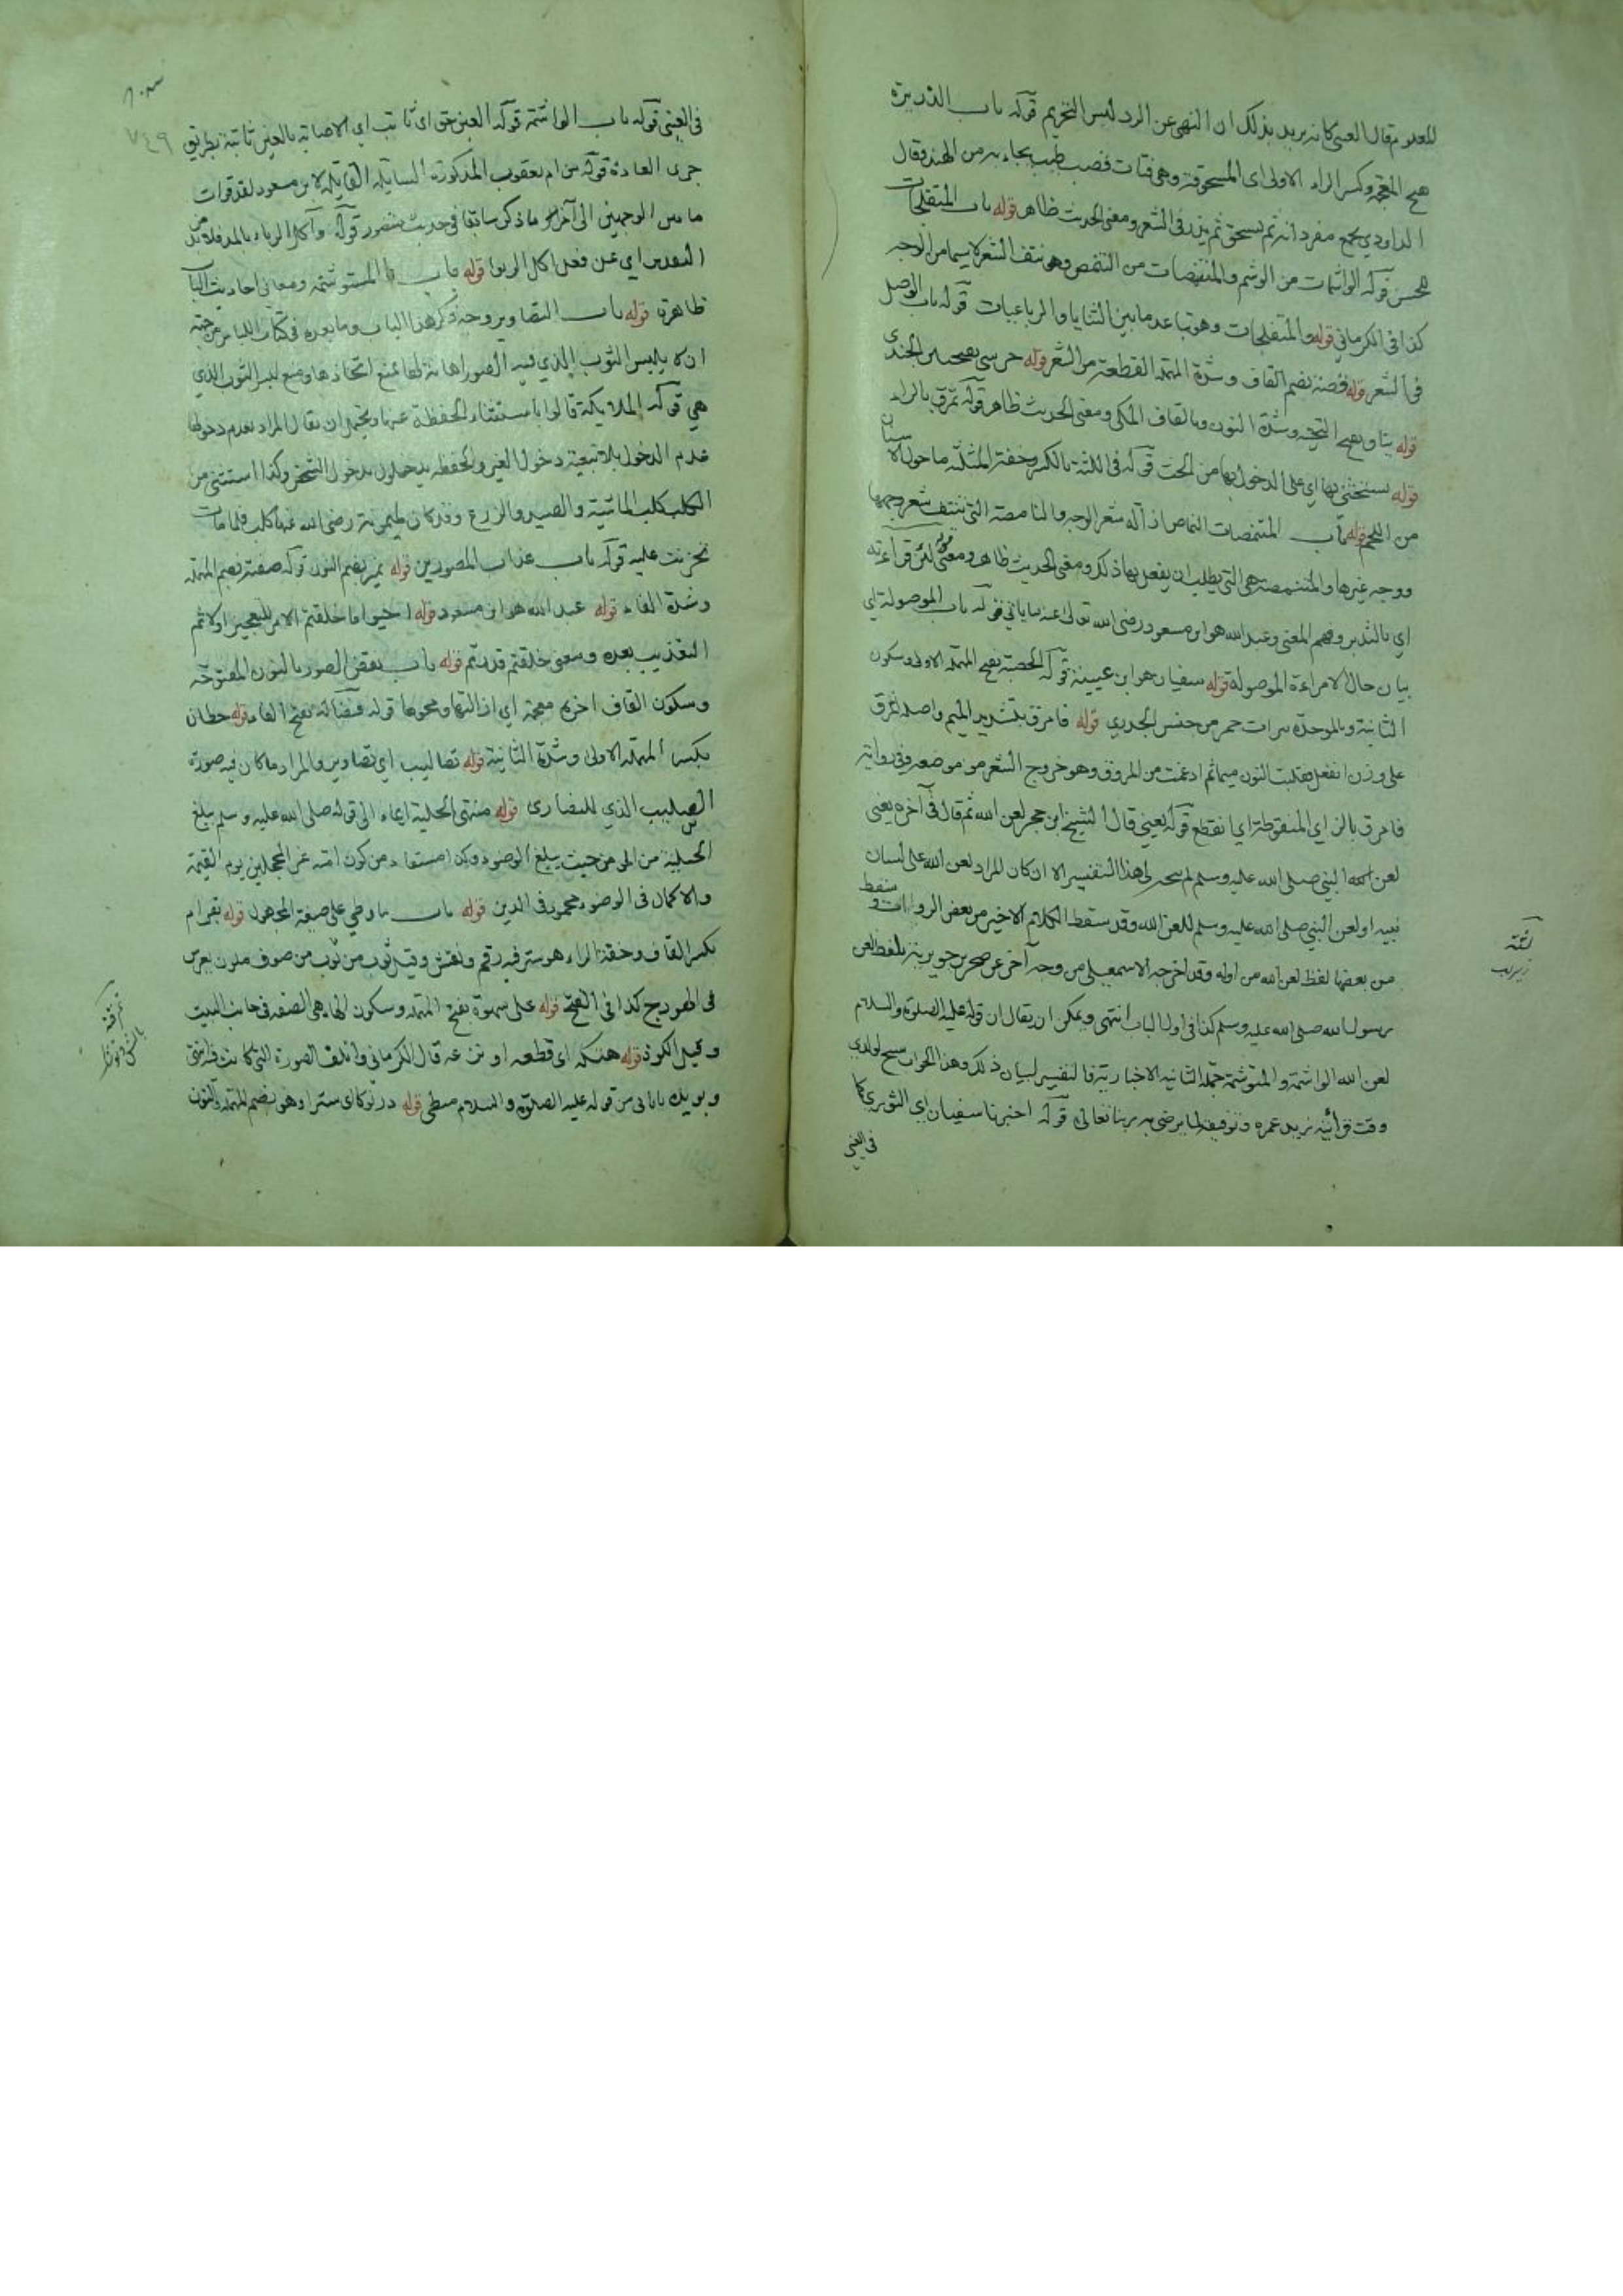 للعدوم قال العيني كانه يريد بذلك ان النهي عن الرد ليس التحريم قوله باب الذريرة
فتح المعجمة وكسر الراء الاولى اى المسحوقة وهى فتات قصب طيب يجاء به من الهند وقال
الداودي يجمع مفرداته ثم يسحق ثم يذر فى الشعر ومعنى الحديث ظاهر قوله باب المتفلجات
للحسن قوله الواشمات من الوشم والمتنمصات من التنمص وهو نتف الشعر لا سيما من الوجه
كذا فى الكرمانى قوله والمتفلجات وهو تباعد ما بين الثنايا والرباعيات قوله باب الوصل
فى الشعر قوله قصة بضم القاف وشدة المهملة القطعة من الشعر قوله حرسى بفتحتين الجندى
قوله يناق بفتح التحتية وشدة النون وبالقاف المكى ومعنى الحديث ظاهر قوله تمرق بالراء
قوله يستحثنى بها اى على الدخول بها من الحث قوله فى اللثة بالكسر وخفة المثلثة ما حول الاسنان
من اللحم قوله باب المتنمصات النماص ازالة شعر الوجه والنامصة التى تنتف شعر وجهها
ووجه غيرها والمتنمصة هى التى يطلب ان يفعل بها ذلك ومعنى الحديث ظاهر ومعنى لئن قرأته
اى بالتدبر وفهم المعنى وعبد الله هو ابن مسعود رضى الله تعالى عنه ما ياتى قوله باب الموصولة اى
بيان حال الامراءة الموصولة قوله سفيان هو ابن عيينة قوله الحصبة بفتح المهملة الاولى وسكون
الثانية وبالموحدة بثرات حمر من جنس الجدرى قوله فامرق بتشديد الميم واصله انمرق
على وزن انفعل فقلبت النون ميما ثم ادغمت من المروق وهو خروج الشعر من موضعه وفى رواية
فامزق بالزاى المنقوطة اى انقطع قوله يعنى قال الشيخ ابن حجر لعن الله ثم قال فى آخره يعنى
لعن الله النبى صلى الله عليه وسلم لم يتجه لى هذا التفسير الا ان كان المراد لعن الله على لسان
نبيه او لعن النبى صلى الله عليه وسلم للعن الله وقد سقط الكلام الاخير من بعض الروايات وسقط
من بعضها لفظ لعن الله من اوله وقد اخرجه الاسمعيلى من وجه آخر عن صخر بن جويرية بلفظ لعن
رسول الله صلى الله عليه وسلم كذا فى اول الباب انتهى ويمكن ان يقال ان قوله عليه الصلوة والسلام
لعن الله الواشمة والمتوشمة جملة الثانية الاخبارية فالتفسير لبيان ذلك وهذا الجواب سنح لولدى
وقت قرائته نريد عمره وتوفيقه لما يرضى به ربنا تعالى قوله اخبرنا سفيان اى الثورى كما
فى العينى
فى العينى قوله باب الواشمة قوله العين حق اى ثابت اى الاصابة بالعين ثابتة بطريق
جرى العادة قوله من ام يعقوب المذكورة السايلة القايلة لابن مسعود لقد قرات
ما بين الوجهين الى آخر ما ذكر سابقا فى حديث منصور قوله وآكل الرباء بالمد فلابد من
التقدير اى عن فعل اكل الربوا قوله باب المستوشمة ومعانى احاديث الباب
ظاهرة قوله باب التصاوير وجه ذكر هذا الباب وما بعده فى كتاب اللباس من جهة
ان لا يلبس الثوب الذى فيه الصور اهانة لها يمنع اتخاذها ومنع لبس الثوب الذى
هى قوله الملايكة قالوا باستثناء الحفظة عنها ويحتمل ان يقال المراد بعدم دخولها
عدم الدخول بلا تبعية دخول الغير والحفظة يدخلون بدخول الشخص وكذا استثنى من
الكلب كلب الماشية والصيد والزرع وقد كان لميمونة رضى الله عنها كلب فلما مات
حزنت عليه قوله باب عذاب المصورين قوله نمير بضم النون قوله صفته بضم المهملة
وشدة الفاء قوله عبد الله هو ابن مسعود قوله احيوا ما خلقتم الامر للتعجيز اولا ثم
التعذيب بعده ومعنى خلقتم قدرتم قوله باب نقض الصور بالنون المفتوحة
وسكون القاف اخره معجمة اى ازالتها ومحوها قوله بفتح الفاء قوله حطان
بكسر المهملة الاولى وشدة الثانية قوله تصاليب اى تصاوير والمراد ما كان فيه صورة
الصليب الذى للنصارى قوله منتهى الحلية ايماء الى قوله صلى الله عليه وسلم يبلغ
الحلية من المؤمن حيث يبلغ الوضوء من كون امته غر المحجلين يوم القيمة
والاكمال فى الوضوء محمود فى الدين قوله باب ما وطى على صيغة المجهول قوله بقرام
بكسر القاف وخفة الراء هو ستر فيه رقم ونقش وقيل ثوب من صوف ملون يفرش
فى الهودج كذا فى الفتح قوله على سهوة بفتح المهملة وسكون الهاء هى الصفة فى جانب البيت
وقيل الكوة قوله هتكه اى قطعه او نزعه قال الكرمانى واتلف الصورة التى كانت
ويؤيده ما ياتى من قوله عليه الصلوة والسلام قوله درنوكا اى سترا وهو بضم المهملة والنون